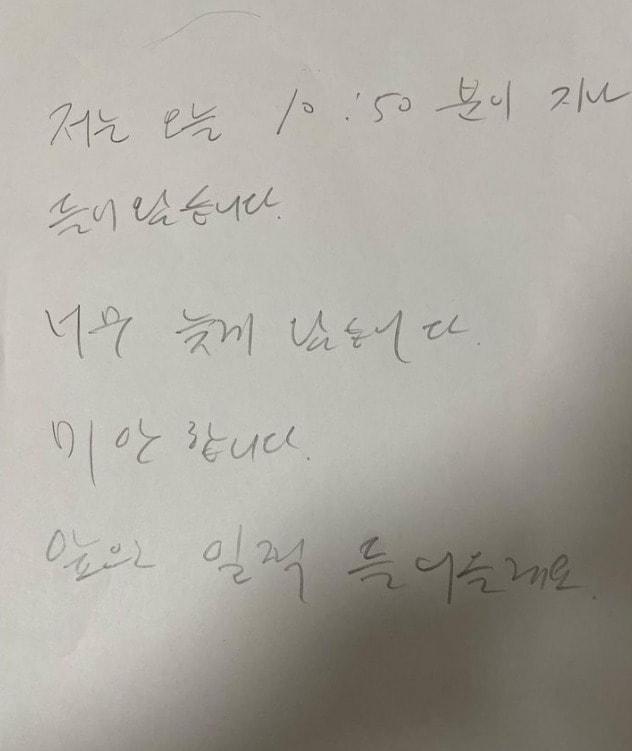 저는 오늘 10:50 분이 지나
들어 왔습니다.
너무 늦게 났습니다.
미안합니다.
앞으로 일찍 들어올래요.